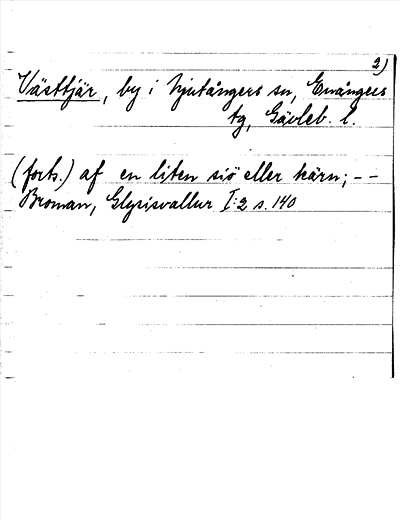 2)
Västtjär, by i Njutångers sn, Enångers
tg, Gävleb. l.
(forts.) af en liten siö eller kärn; - -
Broman, Glysisvallur I:2 s. 140